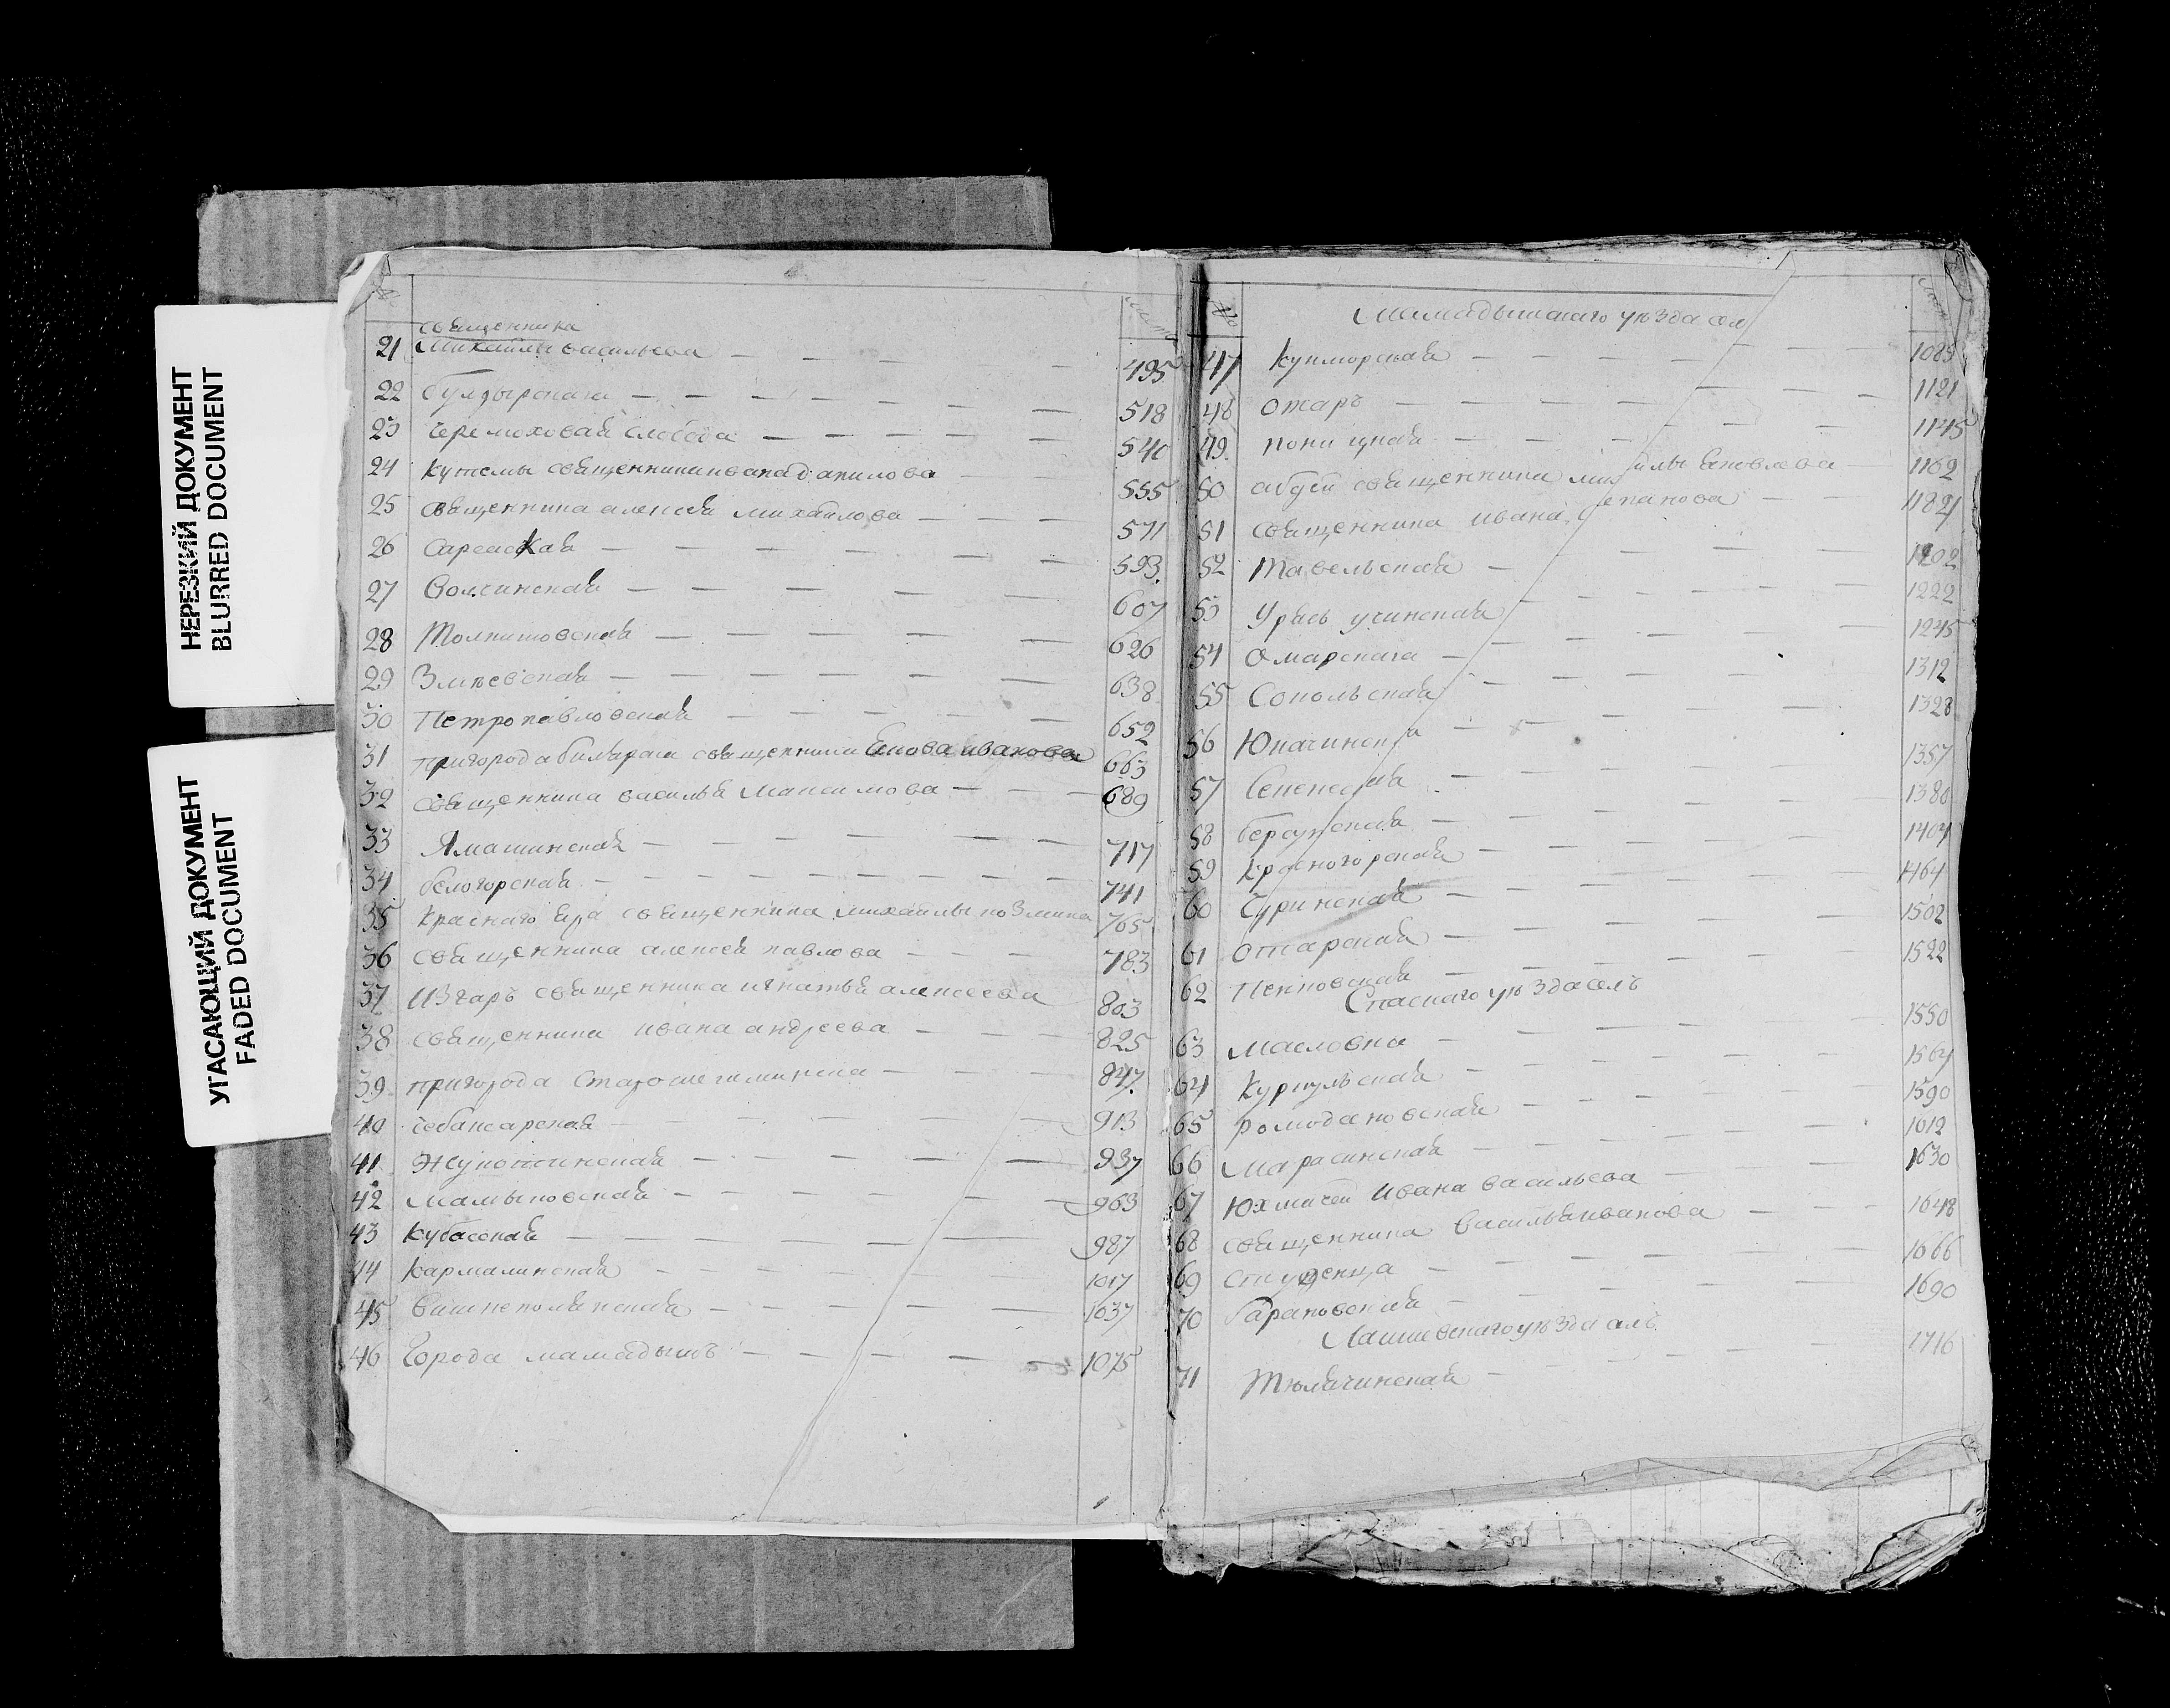 НЕРЕЗКИЙ ДОКУМЕНТ
BLURRED DOCUMENT
УГАСАЮЩИЙ ДОКУМЕНТ
FADED DOCUMENT
№
священника
21 Михаилы васильева 495
22 булдырскага 518
23 Черемоховай слобода 540
24 кутемы священника ивана данилова 555
25 священника алексея михайлова 571
26 Сарсаская 593
27 Волчинская 607
28 Толкишовская 626
29 Змиевская 638
30 Петропавловская 652
31 пригорода билярска священника Екова иванова 663
32 священника василья Максимова 689
33 Ямашинская 717
34 белогорская 741
35 краснаго яра священника михаилы козмина 765
36 священника алексея павлова 783
37 Изгаръ священника игнатья алексеева 803
38 священника ивана андреева 825
39 пригорода Старошешминска 847
40 чебаксарская 913
41 Жукотинская 937
42 Мамыковская 963
43 Кубасская 987
44 Кармалинская 1017
45 Вишнеполянская 1037
46 Города мамадышъ 1075
№
Мамадышскаго уѣзда сел
47 кукморская 1089
48 отаръ 1121
49 1145
50 абдей священника михайлы Яковлева 1162
51 священника ивана Степанова 1182
52 Тавельская 1202
53 Урясь учинская 1222
54 Омарскага 1245
55 Сокольская 1312
56 Юкачинская 1328
57 Секенеская 1357
58 берсутская 1380
59 красногорская 1404
60 Суринская 1464
61 Отарская 1502
62 Пенковская 1522
Спаскаго уѣзда селъ
63 масловка 1550
64 куркульская 1564
65 ромодановская 1590
66 марасинская 1612
67 Юхмачей ивана васильева 1630
68 священника Василья иванова 1648
69 студенца 1666
70 барановская 1690
Лаишевскаго уѣзда селъ
71 Тюлячинская 1716